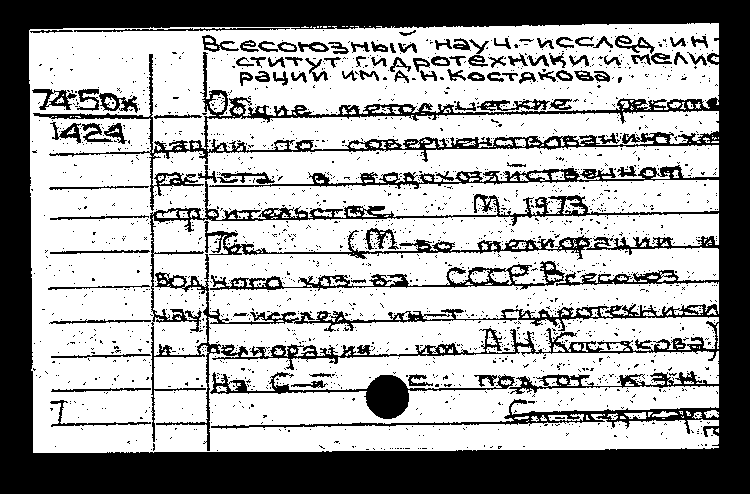 Всесоюзный науч.-исслед. ин-
ститут гидротехники и мелио
рации им. А.Н. Костякова.
74-50к
1424
Общие методические рекоме
дации по совершенствованию хо
расчета в водохозяйственном
строительстве. М., 1973
с. (М-во мелиорации и
водного хоз-ва СССР. Всесоюз
науч.-исслед. ин-т гидротехники
и мелиорации им. А.Н. Костякова)
На подгот. к.э.н.
См. след. карт